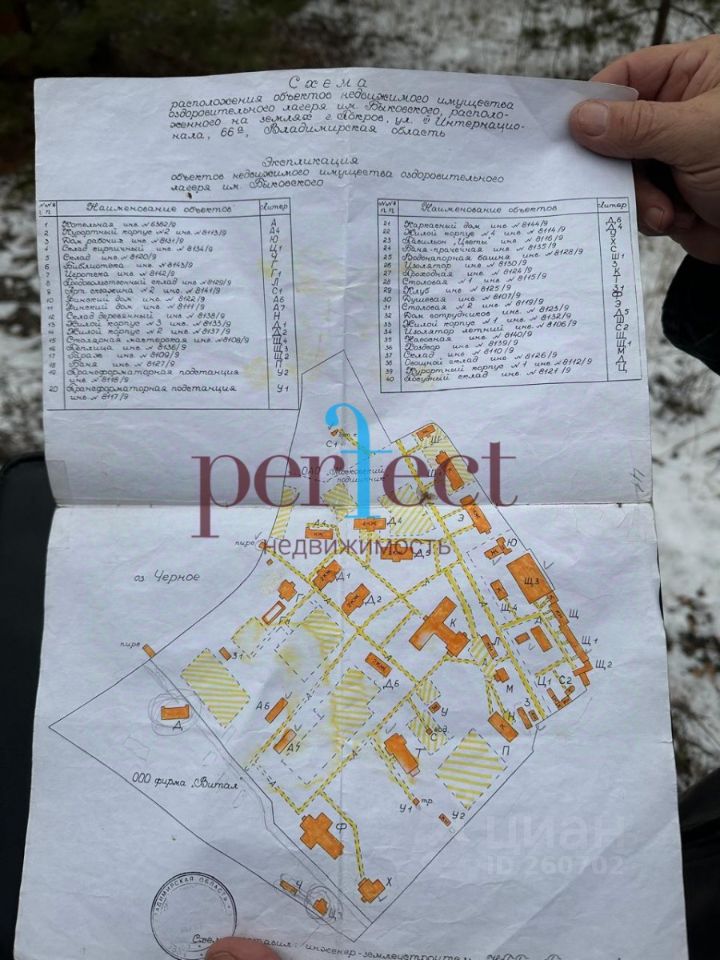 Схема
расположения объектов недвижимого имущества
оздоровительного лагеря им. Быковского, располо-
женного на землях г. Покров, ул. III Интернацио-
нала, 66а, Владимирская область
Экспликация
объектов недвижимого имущества оздоровительного
лагеря им. Быковского
№№ п п Наименование объектов Литер
1 Котельная инв. № 6362/9 А
2 Курортный корпус №2 инв. № 8113/9 Д4
3 Дом рабочих инв. № 8131/9 Ю
4 Склад кирпичный инв. № 8134/9 Ц1
5 Склад инв. № 8120/9
6 Библиотека инв. № 8143/9
7 Игротека инв. № 8142/9 Г1
8 Продовольственный склад инв. № 8129/9 Л
9 Арт. скважина №2 инв. № 8141/9 С1
10 Финский дом инв. № 8122/9 А6
11 Финский дом инв. № 8111/9 А7
12 Склад деревянный инв. № 8138/9 Н
13 Жилой корпус №3 инв. № 8135/9 Д1
14 Жилой корпус №2 инв. № 8137/9
15 Столярная мастерская инв. № 8108/9 Щ4
16 Теплица инв. № 8136/9 Щ3
17 Гараж инв. № 8109/9 Щ2
18 Баня инв. № 8127/9 П
19 Трансформаторная подстанция У2
инв. № 8118/9
20 Трансформаторная подстанция У1
инв. № 8117/9
№№ п п Наименование объектов Литер
21 Каркасный дом инв. № 8144/9 Д6
22 Жилой корпус №4 инв. № 8114/9
23 Павильон "Цветы" инв. № 8116/9 У
24 Дача-прачечная инв. № 8133/9 Х
25 Водонапорная башня инв. № 8128/9 С
26 Изолятор инв. № 8130/9
27 Проходная инв. № 8124/9
28 Столовая №1 инв. № 8115/9
29 Клуб инв. № 8125/9
30 Душевая инв. № 8107/9 З1
31 Столовая №2 инв. № 8119/9
32 Дом сотрудников инв. № 8123/9 Э
33 Жилой корпус №1 инв. № 8132/9 Д5
34 Изолятор летний инв. № 8106/9 Ш
35 инв. № 8140/9 С2
36 инв. № 8139/9 Щ
37 Склад инв. № 8110/9 Щ1
38 Овощной склад инв. № 8126/9 М
39 Курортный корпус №1 инв. № 8112/9 Д
40 Посудный склад инв. № 8121/9 Ц
С1
Ш
perfect
недвижимость
Э
Д4
Д5
пирс
Ю
Ж
оз. Черное
Д1
Д2
Щ3
Щ4
Г
К
Щ
Щ1
Щ2
пирс
З1
Л
Д6
М
Ц1
С2
А6
У
Д
С
Н
З
А7
Т
П
ООО фирма „Витал"
У1
тр.
У2
Ф
Х
Ч
ЦИАН
ID 260702
ВЛАДИМИРСКАЯ ОБЛАСТЬ
инженер-землеустроитель